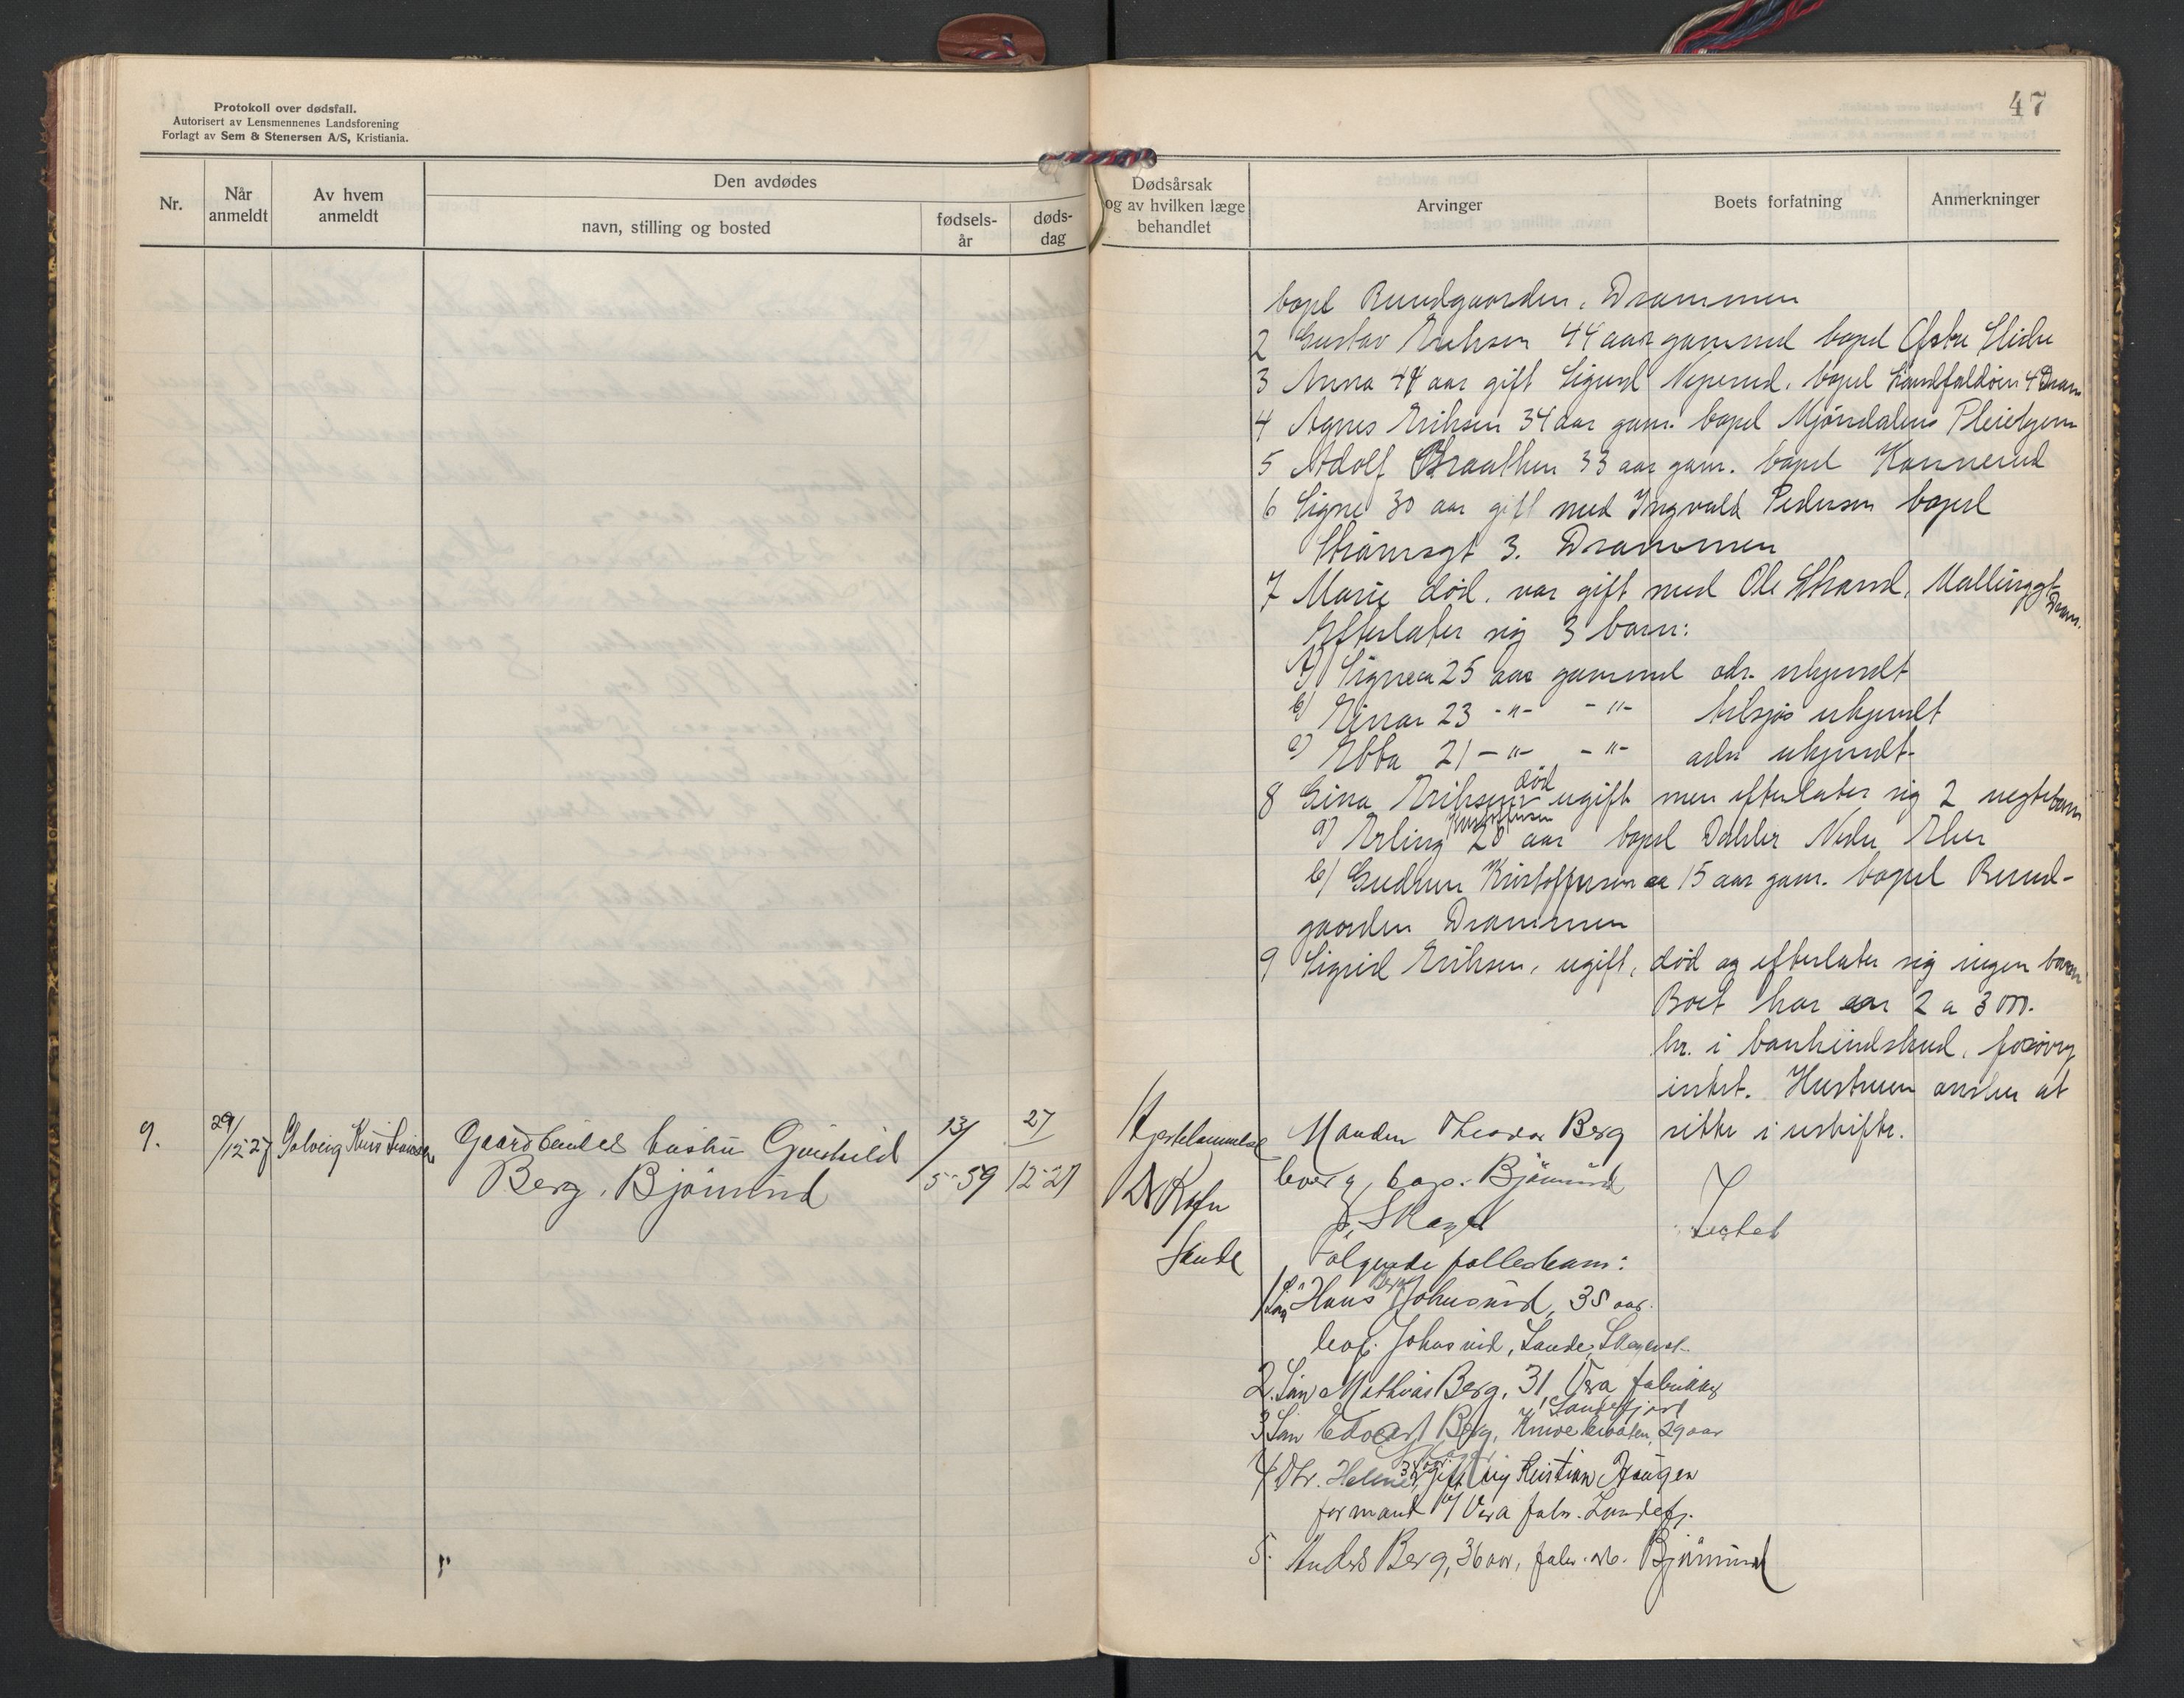 Protokoll over dødsfall.
Autorisert av Lensmennenes Landsforening
Forlagt av Sem & Stenersen A/S, Kristiania.
47
Nr.
Når anmeldt
Av hvem anmeldt
Den avdødes
navn, stilling og bosted
fødsels-år
døds-dag
Dødsårsak og av hvilken læge behandlet
Arvinger
Boets forfatning
Anmerkninger
bopl Rundgaarden, Drammen
2 Gustav Eriksen 44 aar gammel bopel Østre Slidre
3 Anna 47 aar gift Sigurd bopel Landfaldøien 4 Dram
4 Agnes Eriksen 34 aar gam. bopel Mjøndalens Pleiehjem
5 Adolf Braathen 33 aar gam. bopel Konnerud
6 Signe 30 aar gift med Ingvald Pedersen bopel
Strømsgt 3. Drammen
7 Marie død. var gift med Ole Strand, Mallinggt Dram.
Efterlater sig 3 barn:
a) Signe ca 25 aar gammel adr. ukjendt
b) Einar 23 -"- -"- tilsjøs ukjendt
c) Ebba 21 -"- -"- adr ukjendt
8 Gina Eriksen død ugift men efterlater sig 2 uegte barn
a) Erling Kristoffersen 20 aar bopel Dahler Nedre Eker
b) Gudrun Kristoffersen ca 15 aar gam. bopel Rund-
gaarden Drammen
9 Sigrid Eriksen, ugift, død og efterlater sig ingen barn
Boet har ca 2 a 300.
kr. i bankindskud, forøvrig
intet. Hustruen ønsker at
sitte i uskifte.
9. 29/12 27 Solveig Kristiansen Gaardbruker hustru Gunhild 13/ 27 Hjertelammelse Manden Theodor Berg
Berg, Bjømund 5-59 12-27 Dr Rafn lever, bop. Bjørnund
p. Skoger Intet
Sande Følgende fellesbarn:
1 Søn Hans Berg Johnsrud, 38 aar.
Johnsrud, Sande,
2. Søn Mathias Berg, 31, Vera fabrikker
Sandefjord
3 Søn Edvart Berg, 29 aar
Skoger
4 Dtr. Helene, 34 aar gift m/ Kristian Haugen
formand v/ Vera fabr. Sandefj.
5. Anders Berg, 36 aar, fabr. arb. Bjørnund